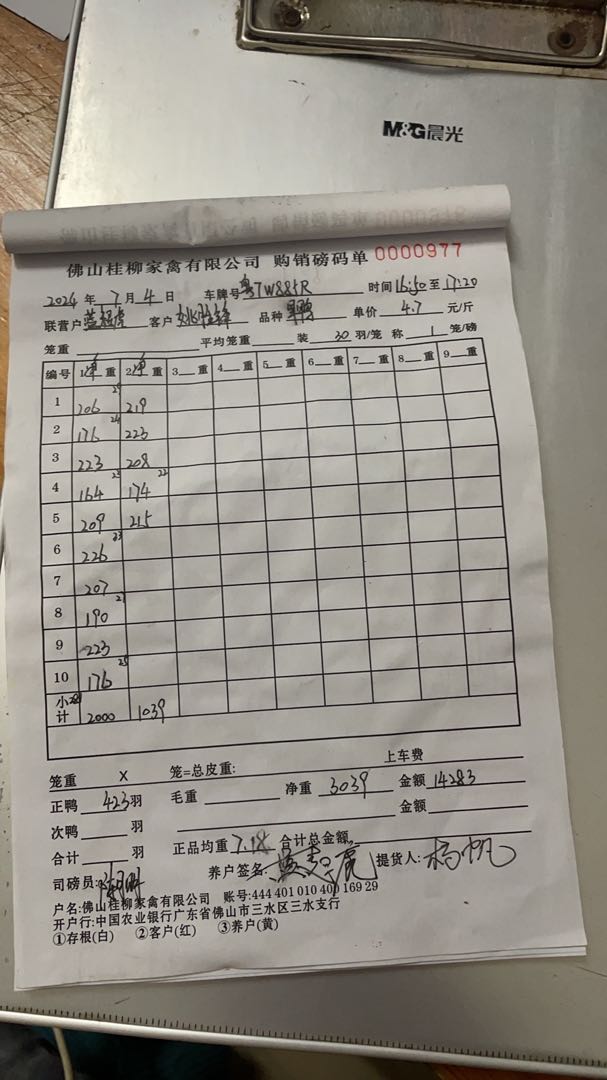 M&G晨光
佛山桂柳家禽有限公司 购销磅码单 0000977
2024年 7月 4日 车牌号 粤TW885R 时间16:50至17:20
联营户 客户 品种 单价 4.7 元/斤
笼重 平均笼重 装 30 羽/笼 称 1 笼/磅
编号 1净重 2净重 3重 4重 5重 6重 7重 8重 9重
1 206 29 219
2 176 24 223
3 223 208
4 164 23 174 22
5 209 215
6 226 23
7 207
8 190
9 223
10 176 25
小计 2000 1039
上车费
笼重 X 笼=总皮重:
正鸭 423 羽 毛重 净重 3039 金额 14283
次鸭 羽 金额
合计 羽 正品均重 7.18 合计总金额
司磅员: 养户签名: 提货人: 杨帆
户名:佛山桂柳家禽有限公司 账号:444 401 010 400 169 29
开户行:中国农业银行广东省佛山市三水区三水支行
①存根(白) ②客户(红) ③养户(黄)